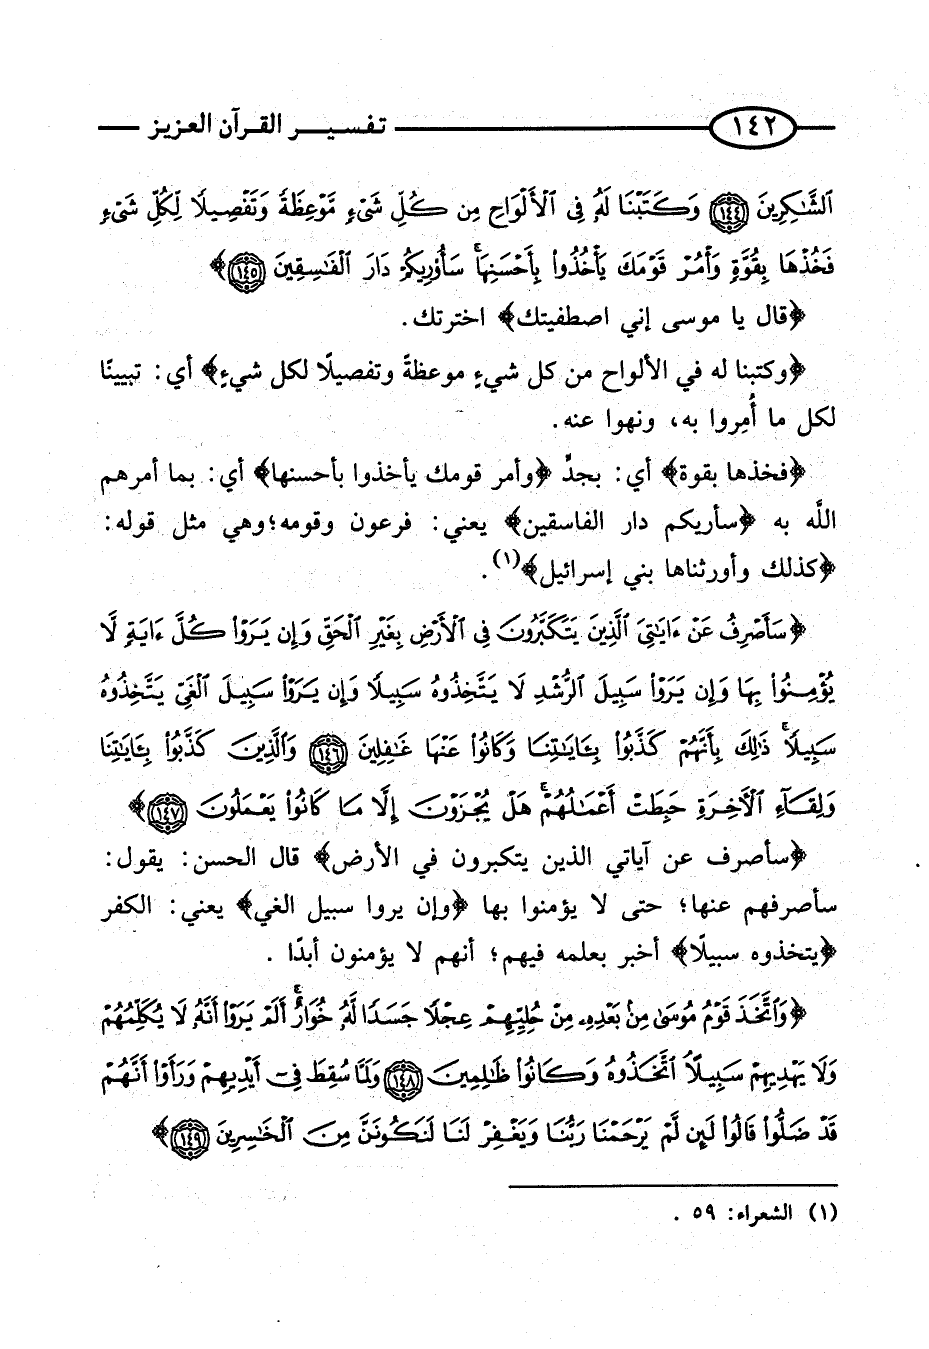 ١٤٢ تفسير القرآن العزيز
ٱلشَّـٰكِرِينَ ١٤٤ وَكَتَبْنَا لَهُۥ فِى ٱلْأَلْوَاحِ مِن كُلِّ شَىْءٍ مَّوْعِظَةً وَتَفْصِيلًا لِّكُلِّ شَىْءٍ
فَخُذْهَا بِقُوَّةٍ وَأْمُرْ قَوْمَكَ يَأْخُذُوا۟ بِأَحْسَنِهَا ۚ سَأُو۟رِيكُمْ دَارَ ٱلْفَـٰسِقِينَ ١٤٥﴾
﴿قال يا موسى إني اصطفيتك﴾ اخترتك.
﴿وكتبنا له في الألواح من كل شيءٍ موعظةً وتفصيلًا لكل شيءٍ﴾ أي: تبيينًا
لكل ما أُمِروا به، ونهوا عنه.
﴿فخذها بقوة﴾ أي: بجدٍّ ﴿وأمر قومك يأخذوا بأحسنها﴾ أي: بما أمرهم
اللَّه به ﴿سأريكم دار الفاسقين﴾ يعني: فرعون وقومه؛وهي مثل قوله:
﴿كذلك وأورثناها بني إسرائيل﴾(١).
﴿سَأَصْرِفُ عَنْ ءَايَـٰتِىَ ٱلَّذِينَ يَتَكَبَّرُونَ فِى ٱلْأَرْضِ بِغَيْرِ ٱلْحَقِّ وَإِن يَرَوْا۟ كُلَّ ءَايَةٍ لَّا
يُؤْمِنُوا۟ بِهَا وَإِن يَرَوْا۟ سَبِيلَ ٱلرُّشْدِ لَا يَتَّخِذُوهُ سَبِيلًا وَإِن يَرَوْا۟ سَبِيلَ ٱلْغَىِّ يَتَّخِذُوهُ
سَبِيلًا ۚ ذَٰلِكَ بِأَنَّهُمْ كَذَّبُوا۟ بِـَٔايَـٰتِنَا وَكَانُوا۟ عَنْهَا غَـٰفِلِينَ ١٤٦ وَٱلَّذِينَ كَذَّبُوا۟ بِـَٔايَـٰتِنَا
وَلِقَآءِ ٱلْـَٔاخِرَةِ حَبِطَتْ أَعْمَـٰلُهُمْ ۚ هَلْ يُجْزَوْنَ إِلَّا مَا كَانُوا۟ يَعْمَلُونَ ١٤٧﴾
﴿سأصرف عن آياتي الذين يتكبرون في الأرض﴾ قال الحسن: يقول:
سأصرفهم عنها؛ حتى لا يؤمنوا بها ﴿وإن يروا سبيل الغي﴾ يعني: الكفر
﴿يتخذوه سبيلًا﴾ أخبر بعلمه فيهم؛ أنهم لا يؤمنون أبدًا.
﴿وَٱتَّخَذَ قَوْمُ مُوسَىٰ مِنۢ بَعْدِهِۦ مِنْ حُلِيِّهِمْ عِجْلًا جَسَدًا لَّهُۥ خُوَارٌ ۚ أَلَمْ يَرَوْا۟ أَنَّهُۥ لَا يُكَلِّمُهُمْ
وَلَا يَهْدِيهِمْ سَبِيلًا ٱتَّخَذُوهُ وَكَانُوا۟ ظَـٰلِمِينَ ١٤٨ وَلَمَّا سُقِطَ فِىٓ أَيْدِيهِمْ وَرَأَوْا۟ أَنَّهُمْ
قَدْ ضَلُّوا۟ قَالُوا۟ لَئِن لَّمْ يَرْحَمْنَا رَبُّنَا وَيَغْفِرْ لَنَا لَنَكُونَنَّ مِنَ ٱلْخَـٰسِرِينَ ١٤٩﴾
(١) الشعراء: ٥٩.